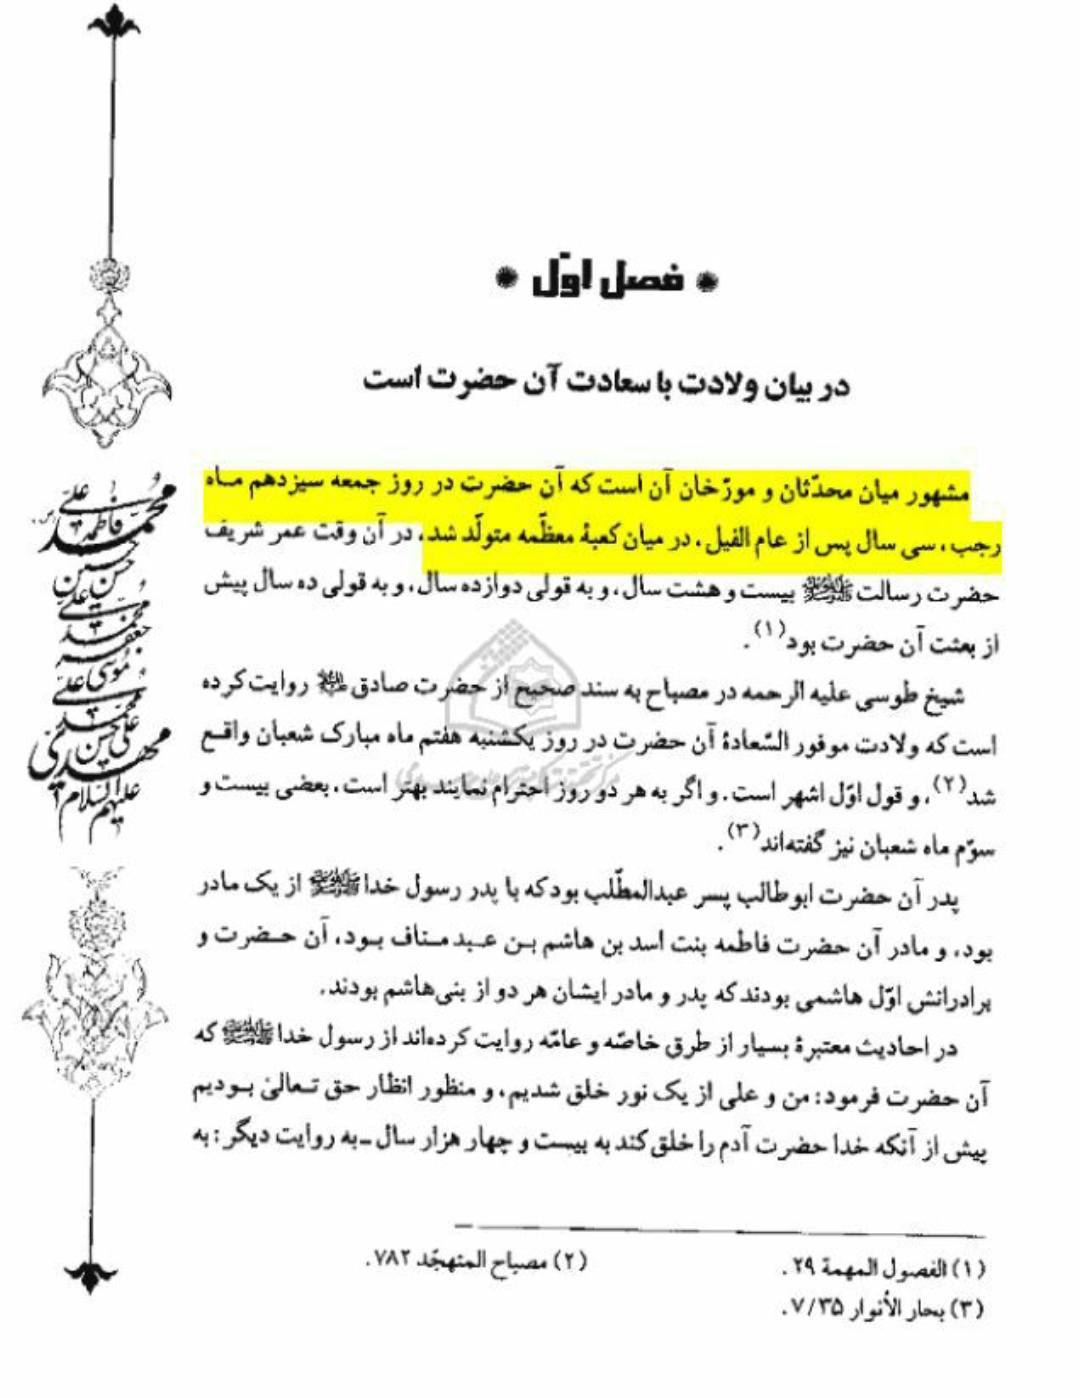 فصل اوّل
در بیان ولادت با سعادت آن حضرت است
مشهور میان محدّثان و مورّخان آن است که آن حضرت در روز جمعه سیزدهم ماه
رجب، سی سال پس از عام الفیل، در میان کعبهٔ معظّمه متولّد شد، در آن وقت عمر شریف
حضرت رسالت ﷺ بیست و هشت سال، و به قولی دوازده سال، و به قولی ده سال پیش
از بعثت آن حضرت بود(۱).
شیخ طوسی علیه الرحمه در مصباح به سند صحیح از حضرت صادق روایت کرده
است که ولادت موفور السّعادهٔ آن حضرت در روز یکشنبه هفتم ماه مبارک شعبان واقع
شد(۲)، و قول اوّل اشهر است. و اگر به هر دو روز احترام نمایند بهتر است، بعضی بیست و
سوّم ماه شعبان نیز گفته‌اند(۳).
پدر آن حضرت ابوطالب پسر عبدالمطّلب بود که با پدر رسول خدا ﷺ از یک مادر
بود، و مادر آن حضرت فاطمه بنت اسد بن هاشم بن عبد مناف بود، آن حضرت و
برادرانش اوّل هاشمی بودند که پدر و مادر ایشان هر دو از بنی‌هاشم بودند.
در احادیث معتبرهٔ بسیار از طرق خاصّه و عامّه روایت کرده‌اند از رسول خدا ﷺ که
آن حضرت فرمود: من و علی از یک نور خلق شدیم، و منظور انظار حق تعالیٰ بودیم
پیش از آنکه خدا حضرت آدم را خلق کند به بیست و چهار هزار سال ـ به روایت دیگر: به
(۱) الفصول المهمة ۲۹.
(۲) مصباح المتهجّد ۷۸۲.
(۳) بحار الأنوار ۷/۳۵.
محمد
فاطمه
علی
حسن
حسین
علی
محمد
جعفر
موسی
علی
محمد
علی
حسن
مهدی
علیهم السلام